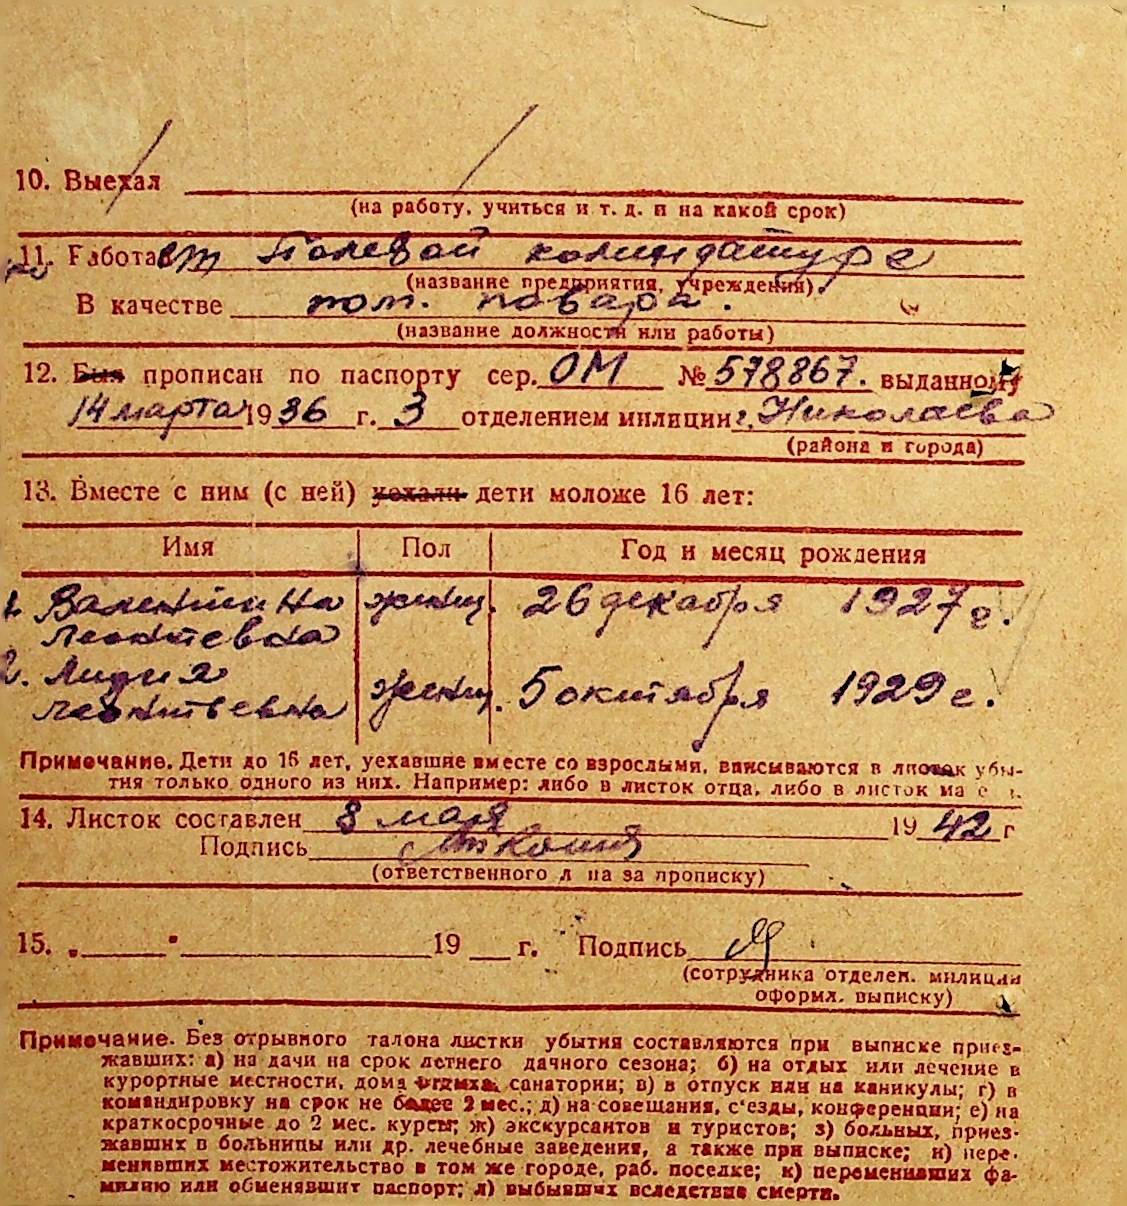 10. Выехал
(на работу, учиться и т. д. и на какой срок)
11. Работает Полевой комендатуре
(название предприятия, учреждения).
В качестве пом. повара.
(название должности или работы)
12. Был прописан по паспорту сер. ОМ № 578867. выданному
14 марта 1936 г. 3 отделением милиции г. Николаева
(района и города)
13. Вместе с ним (с ней) уехали дети моложе 16 лет:
Имя Пол Год и месяц рождения
1. Валентина женщ. 26 декабря 1927 г.
Леонтевна
2. Лидия женщ. 5 октября 1929 г.
Леонтьевна
Примечание. Дети до 16 лет, уехавшие вместе со взрослыми, вписываются в листок убы-
тия только одного из них. Например: либо в листок отца, либо в листок
14. Листок составлен 8 мая 1942 г
Подпись
(ответственного л на за прописку)
15. „ " 19 г. Подпись
(сотрудника отделен. милиции
оформл. выписку)
Примечание. Без отрывного талона листки убытия составляются при выписке приез-
жавших: а) на дачи на срок летнего дачного сезона; б) на отдых или лечение в
курортные местности, дома отдыха, санатории; в) в отпуск или на каникулы; г) в
командировку на срок не более 2 мес.; д) на совещания, с'езды, конференции; е) на
краткосрочные до 2 мес. курсы; ж) экскурсантов и туристов; з) больных, приез-
жавших в больницы или др. лечебные заведения, а также при выписке; и) пере-
менивших местожительство в том же городе, раб. поселке; к) переменивших фа-
милию или обменявшит паспорт; л) выбывших вследствие смерти.